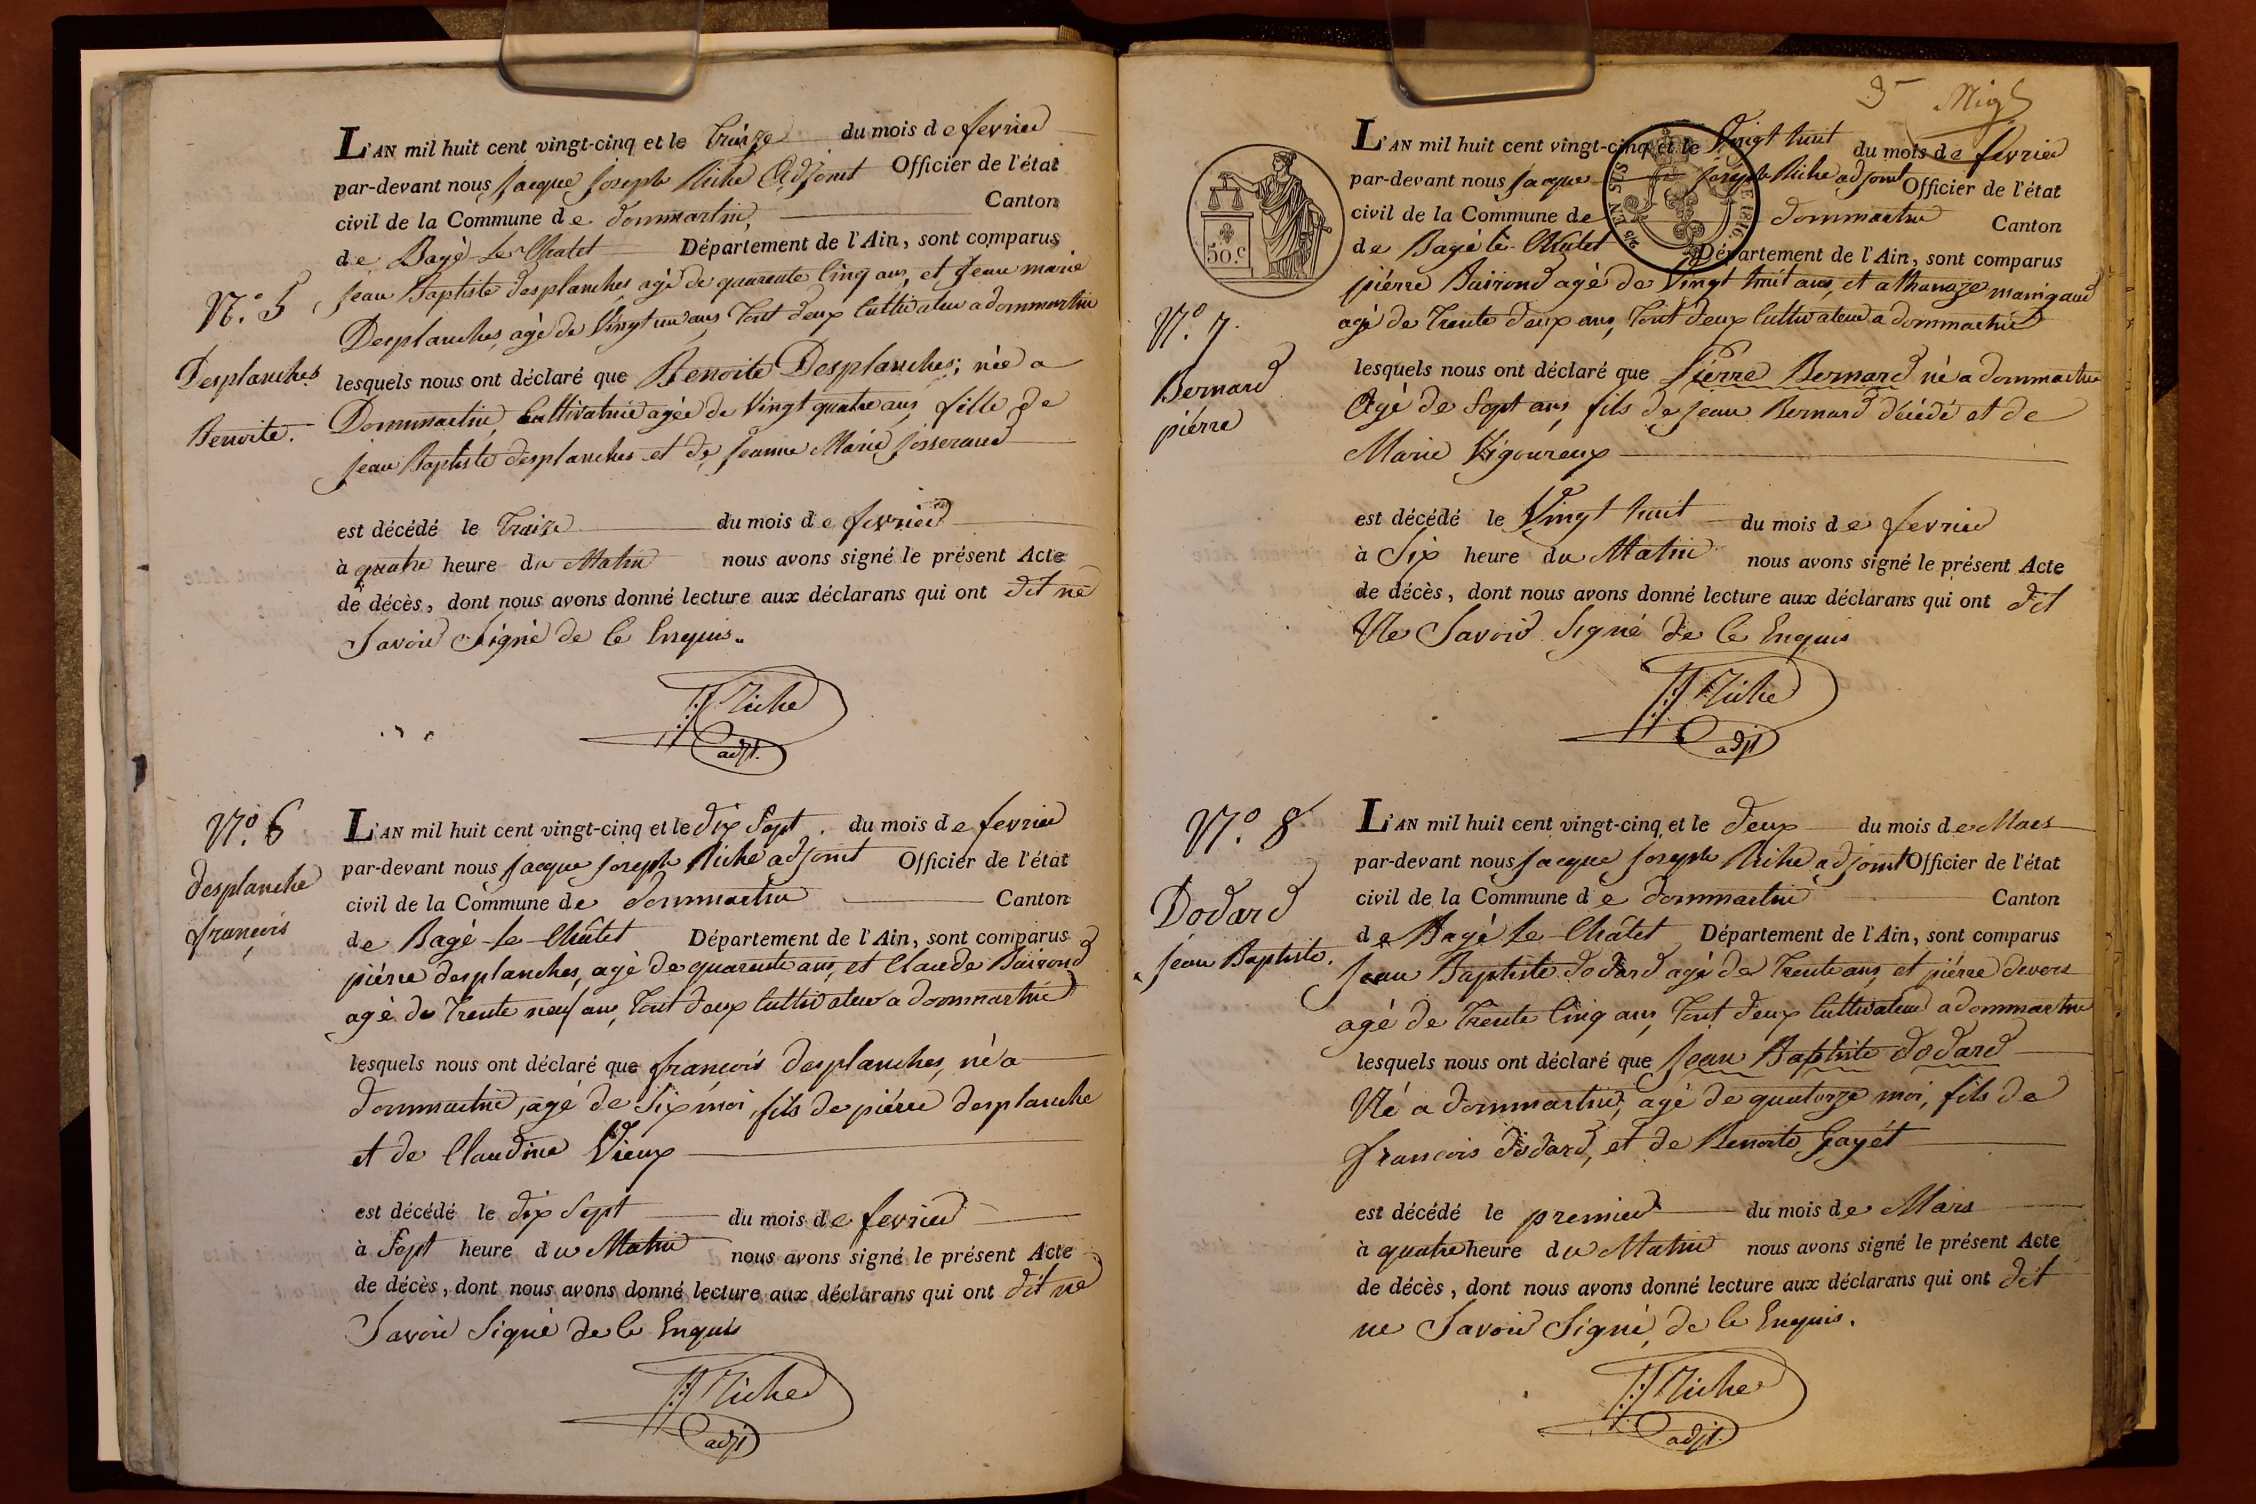 L'AN mil huit cent vingt-cinq et le Traize du mois de fevrier
par-devant nous jacque joseph Riche Adjoint Officier de l'état
civil de la Commune de dommartin, Canton
de Bagé-Le-Chatet Département de l'Ain, sont comparus
N.º 5
jean Baptiste desplanches agé de quarente Cinq ans, et jean marie
Desplanches, agé de Vingt un ans, tout deux Cultivateur a dommartin
Desplanches
Benoite.
lesquels nous ont déclaré que Benoite Desplanches; née a
Dommartin, Cultivatrice agée de Vingt quatre ans, fille de
jean Baptiste desplanches et de jeanne Marie josserand
est décédé le Traize du mois de fevrier
à quatre heure du Matin nous avons signé le présent Acte
de décès, dont nous avons donné lecture aux déclarans qui ont dit ne
Savoir Signé de Ce Enquis.
JJ Riche
adjt.
N.º 6
desplanche
françois
L'AN mil huit cent vingt-cinq et le dix Sept. du mois de fevrier
par-devant nous jacque joseph Riche adjoint Officier de l'état
civil de la Commune de dommartin Canton
de Bagé-Le-Châtet Département de l'Ain, sont comparus
piérre desplanches, agé de quarente ans, et Claude Bairond
agé de Trente neuf ans, tout deux Cultivateur a dommartin
lesquels nous ont déclaré que françois desplanches, né a
dommartin, agé de Six moi, fils de piérre desplanche
et de Claudine Vieux
est décédé le dix Sept du mois de fevrier
à Sept heure du Matin nous avons signé le présent Acte
de décès, dont nous avons donné lecture aux déclarans qui ont dit ne
Savoir Signé de Ce Enquis
JJ Riche
adjt
50.c
1816.
L'AN mil huit cent vingt-cinq et le Vingt huit du mois de fevrier
par-devant nous jacque joseph Riche adjoint Officier de l'état
civil de la Commune de dommartin Canton
de Bagé-le-Châtet Département de l'Ain, sont comparus
piérre Bairond agé de Vingt huit ans, et athanaze manigaud
agé de Trente deux ans, tout deux Cultivateur a dommartin
N.º 7.
Bernard
piérre
lesquels nous ont déclaré que Pierre Bernard né a dommartin
Agé de Sept ans, fils de jean Bernard décédé et de
Marie Vigoureux
est décédé le Vingt huit du mois de fevrier
à Six heure du Matin nous avons signé le présent Acte
de décès, dont nous avons donné lecture aux déclarans qui ont dit
Ne Savoir Signé de Ce Enquis
JJ Riche
adjt
N.º 8
Dodard
jean Baptiste.
L'AN mil huit cent vingt-cinq et le deux du mois de Mars
par-devant nous jacque joseph Riche adjoint Officier de l'état
civil de la Commune de dommartin Canton
de Bagé le Châtet Département de l'Ain, sont comparus
jean Baptiste dodard agé de Trente ans, et piérre devers
agé de Trente Cinq ans, tout deux Cultivateur a dommartin
lesquels nous ont déclaré que jean Baptiste dodard
Né a dommartin, agé de quatorze moi, fils de
françois dodard, et de Benoite Gayét
est décédé le premier du mois de Mars
à quatre heure du Matin nous avons signé le présent Acte
de décès, dont nous avons donné lecture aux déclarans qui ont dit
ne Savoir Signé, de Ce Enquis.
JJ Riche
adjt.